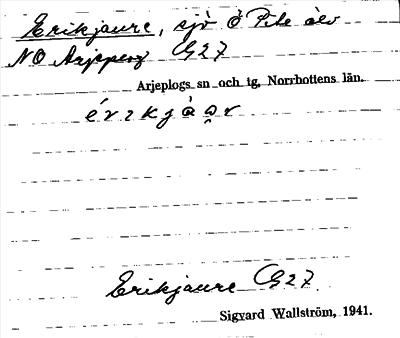 Erikjaure, sjö Ö Pite älv
NO Arjeplog G27
Arjeplogs sn och tg, Norrbottens län.
Erikjaure G27.
Sigvard Wallström, 1941.